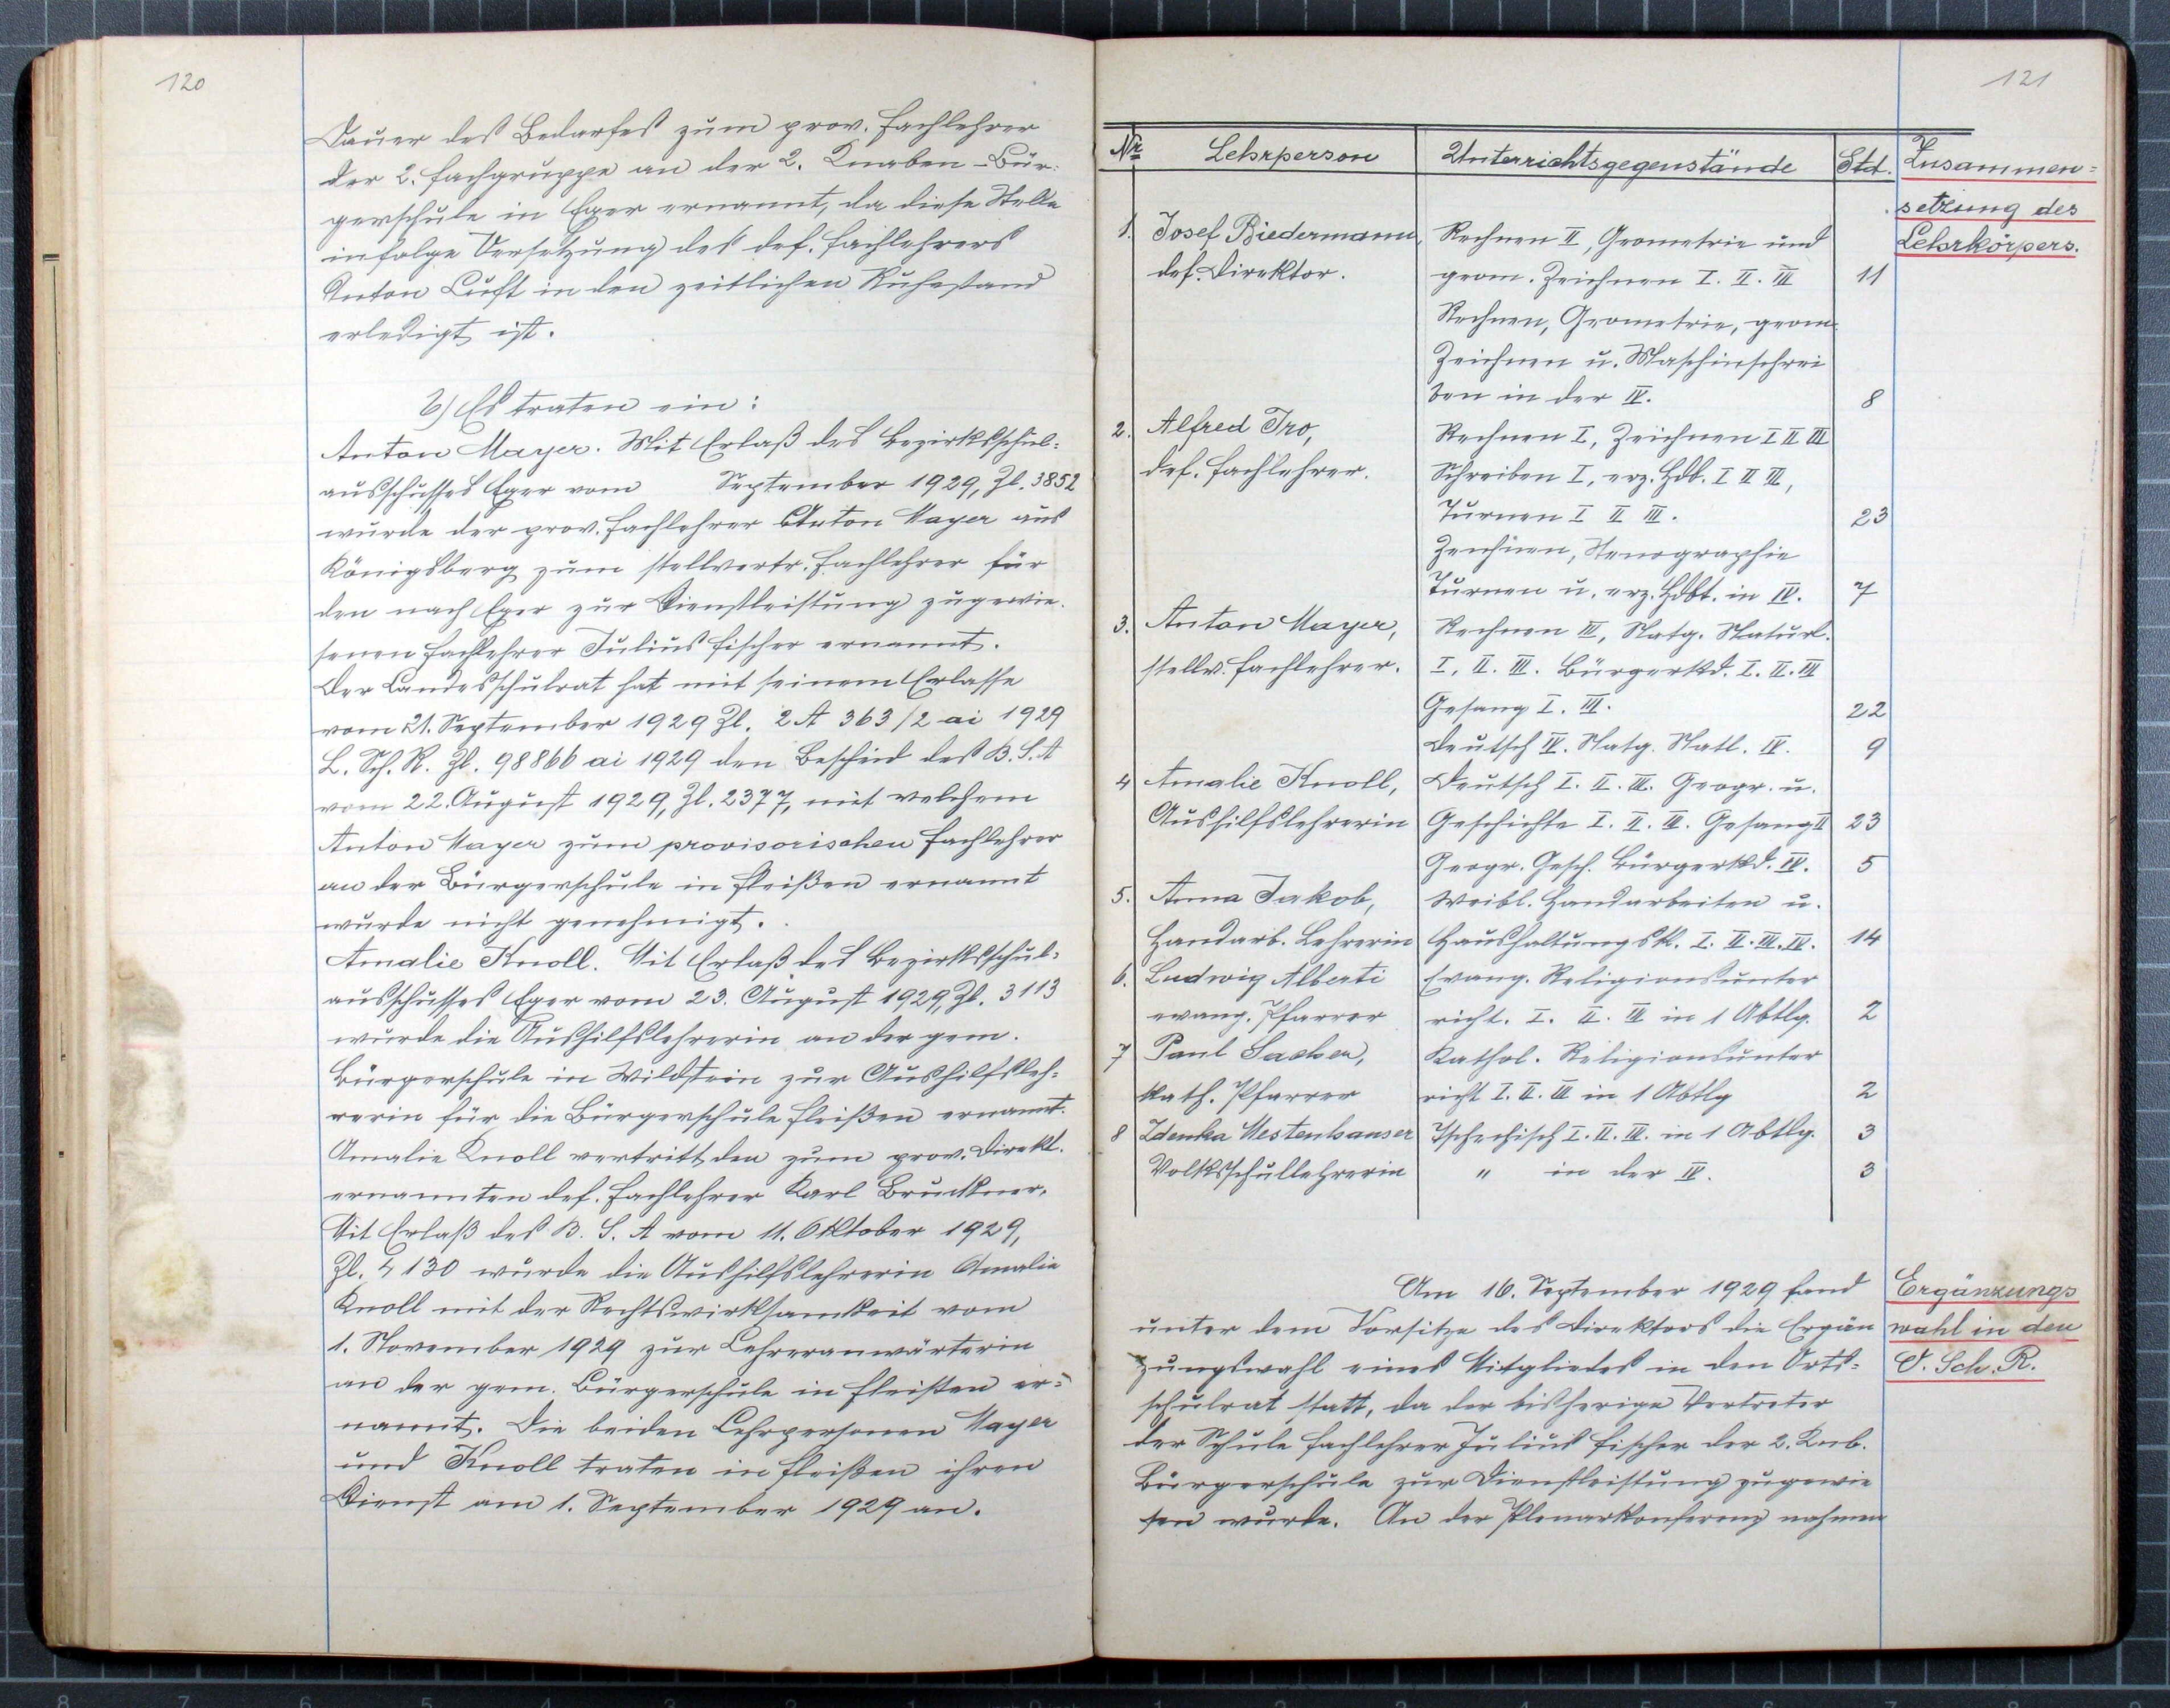 120
Dauer des Bedarfes zum prov. Fachlehrer
der 2. Fachgruppe an der 2. Knaben-Bür-
gerschule in Eger ernannt, da diese Stelle
infolge Versetzung des def. Fachlehrers
Anton Luft in den zeitlichen Ruhestand
erledigt ist.
b) Es traten ein:
Anton Mayer. Mit Erlaß des Bezirksschul-
ausschusses Eger vom September 1929, Zl. 3852
wurde der prov. Fachlehrer Anton Mayer aus
Königsberg zum stellvertr. Fachlehrer für
den nach Eger zur Dienstleistung zugewie-
senen Fachlehrer Julius Fischer ernannt.
Der Landesschulrat hat mit seinem Erlasse
vom 21. September 1929 Zl. 2 A 363/2 ai 1929
L. Sch. R. Zl. 98866 ai 1929 den Bescheid des B. S. A
vom 22. August 1929, Zl. 2377, mit welchem
Anton Mayer zum provisorischen Fachlehrer
an der Bürgerschule in Fleißen ernannt
wurde nicht genehmigt.
Amalie Knoll. Mit Erlaß des Bezirksschul-
ausschusses Eger vom 23. August 1929, Zl. 3113
wurde die Aushilfslehrerin an der gem.
Bürgerschule in Wildstein zur Aushilfsleh-
rerin für die Bürgerschule Fleißen ernannt.
Amalie Knoll vertritt den zum prov. Direkt.
ernannten def. Fachlehrer Karl Bruckner.
Mit Erlaß des B. S. A vom 11. Oktober 1929,
Zl. 4130 wurde die Aushilfslehrerin Amalie
Knoll mit der Rechtswirksamkeit vom
1. November 1929 zur Lehreranwärterin
an der gem. Bürgerschule in Fleißen er-
nannt. Die beiden Lehrpersonen Mayer
und Knoll traten in Fleißen ihren
Dienst am 1. September 1929 an.
121
Nr. Lehrperson Unterrichtsgegenstände Std. Zusammen-
setzung des
Lehrkörpers.
1. Josef Biedermann, Rechnen II, Geometrie und
def. Direktor. geom. Zeichnen I. II. III 11
Rechnen, Geometrie, geom.
Zeichnen u. Maschinschrei
ben in der IV. 8
2. Alfred Iro, Rechnen I, Zeichnen I II III
def. Fachlehrer. Schreiben I, erz. Hdb. I II III,
Turnen I II III. 23
Zeichnen, Stenographie
Turnen u. erz. Hdbt. in IV. 7
3. Anton Mayer, Rechnen III, Natg. Naturl.
stellv. Fachlehrer. I, II. III. Bürgerkd. I. II. III
Gesang I. III. 22
Deutsch IV. Natg. Natl. IV. 9
4 Amalie Knoll, Deutsch I. II. III. Geogr. u.
Aushilfslehrerin Geschichte I. II. III. Gesang II 23
Geogr. Gesch. Bürgerkd. IV. 5
5. Anna Jakob, Weibl. Handarbeiten u.
Handarb. Lehrerin Haushaltungsk. I. II. III. IV. 14
6. Ludwig Alberti Evang. Religionsunter
evang. Pfarrer richt. I. II. III in 1 Abtlg. 2
7 Paul Sacher, Kathol. Religionsunter
kath. Pfarrer richt I. II. III in 1 Abtlg 2
8 Zdenka Westenhauser Tschechisch I. II. III. in 1 Abtlg. 3
Volksschullehrerin " in der IV. 3
Am 16. September 1929 fand
unter dem Vorsitze des Direktors die Ergän
zungswahl eines Mitgliedes in den Orts-
schulrat statt, da der bisherige Vertreter
der Schule Fachlehrer Julius Fischer der 2. Knb.
Bürgerschule zur Dienstleistung zugewie
sen wurde. An der Plenarkonferenz nahmen
Ergänzungs
wahl in den
O. Sch. R.